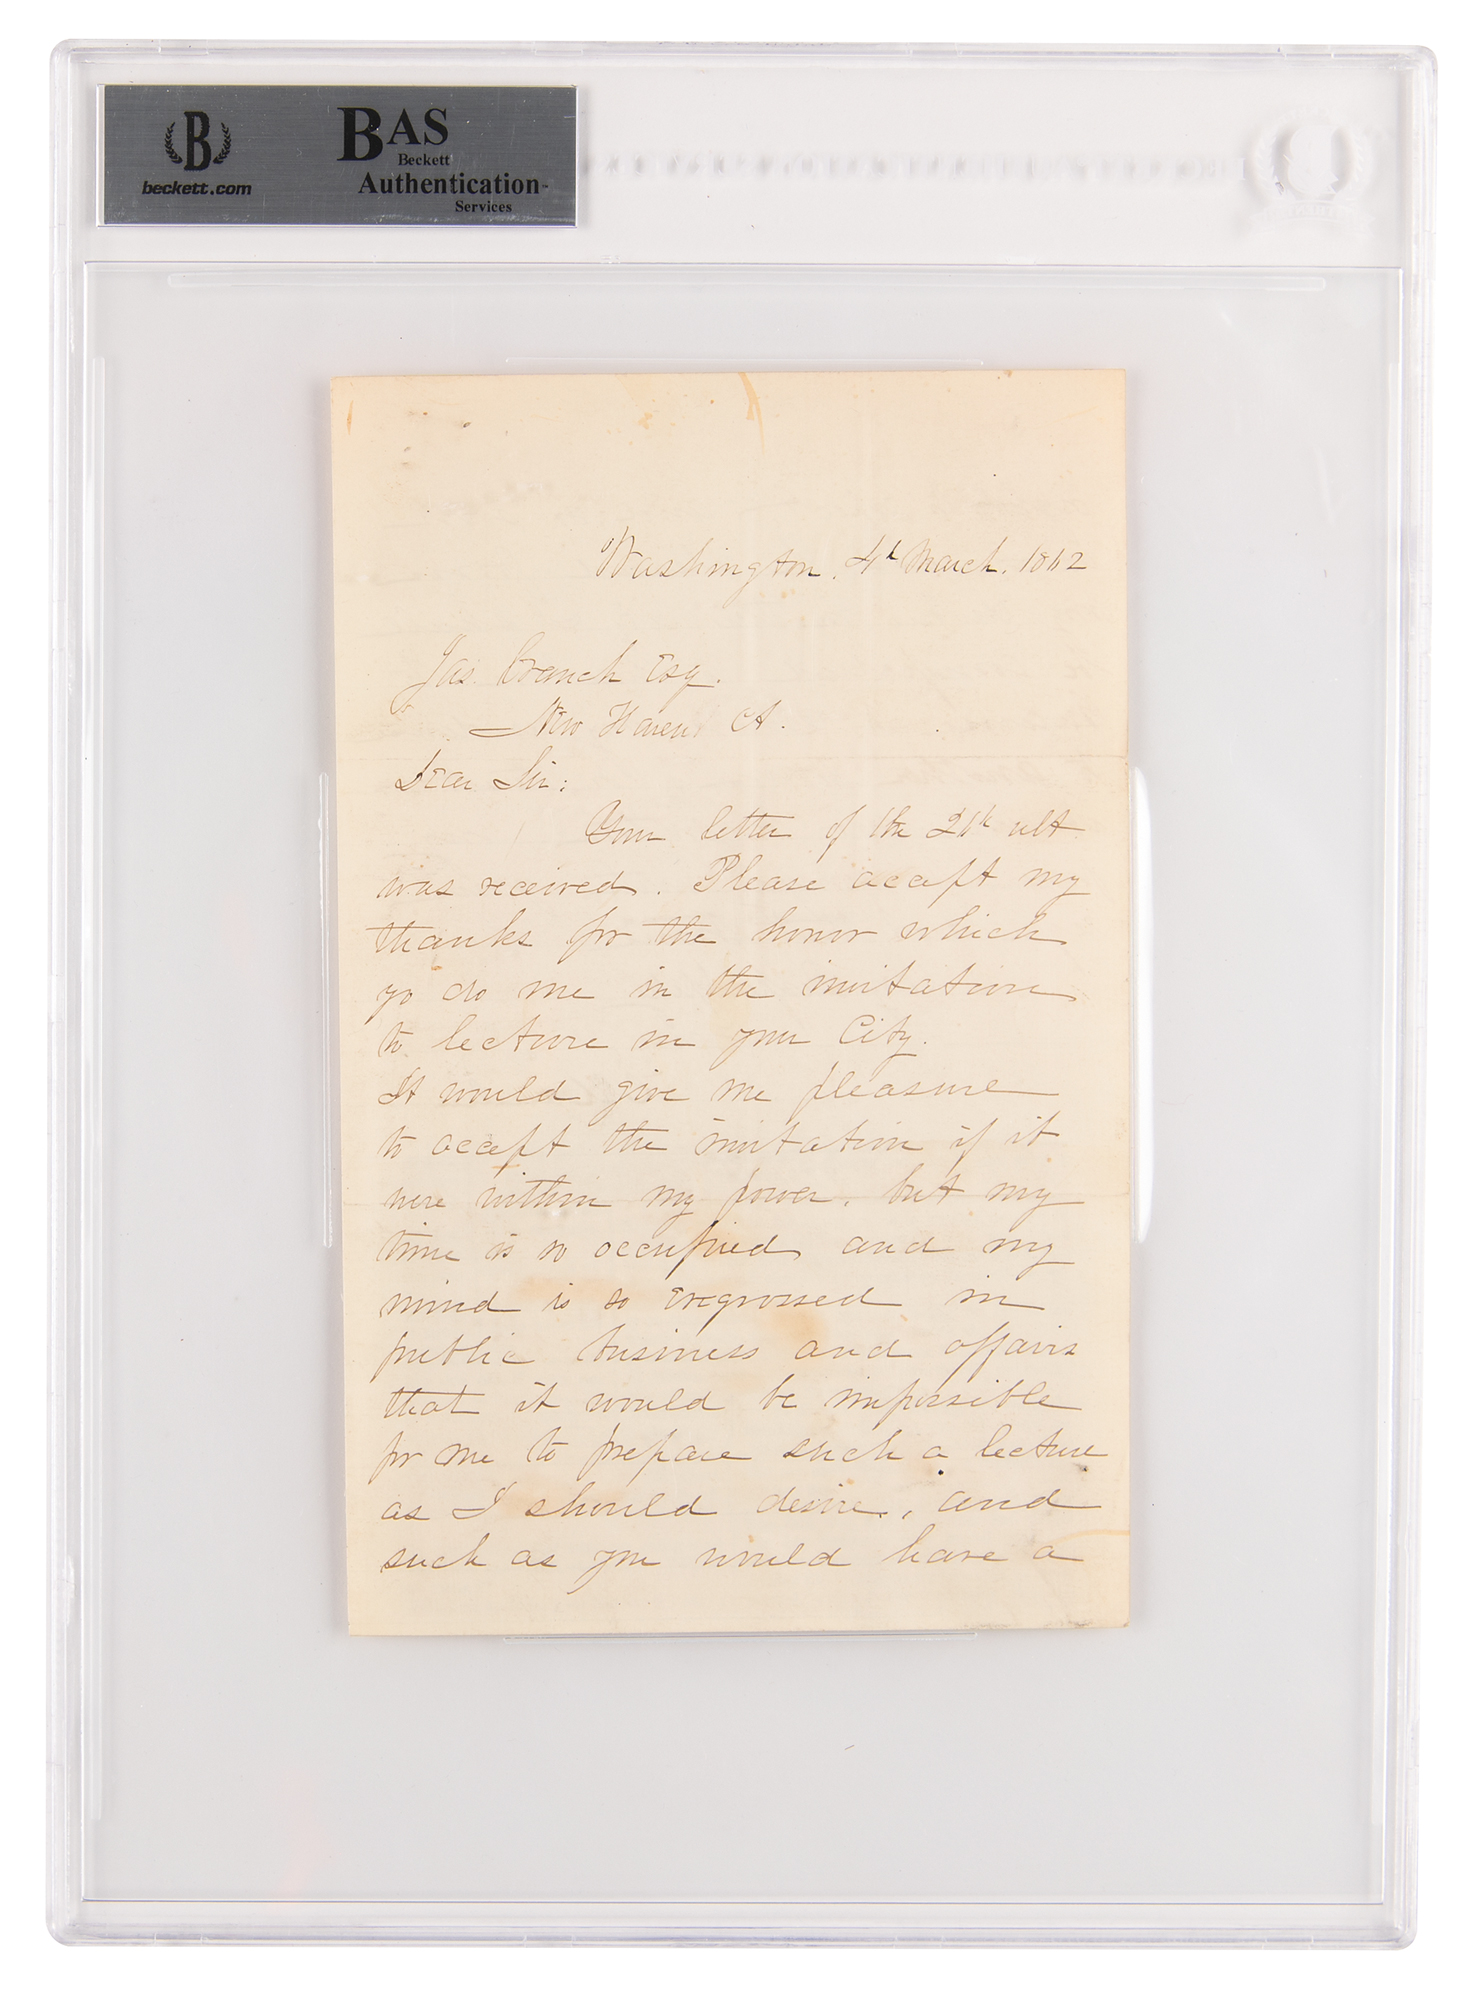 B
beckett.com
BAS
Beckett
Authentication
Services
Washington, 4th March, 1862
Jas. Branch Esq.
New Haven Ct.
Dear Sir:
Your letter of the 26th ult
was received. Please accept my
thanks for the honor which
yo do me in the invitation
to lecture in your City.
It would give me pleasure
to accept the invitation if it
were within my power, but my
time is so occupied and my
mind is so engrossed in
public business and affairs
that it would be impossible
for me to prepare such a lecture
as I should desire, and
such as you would have a